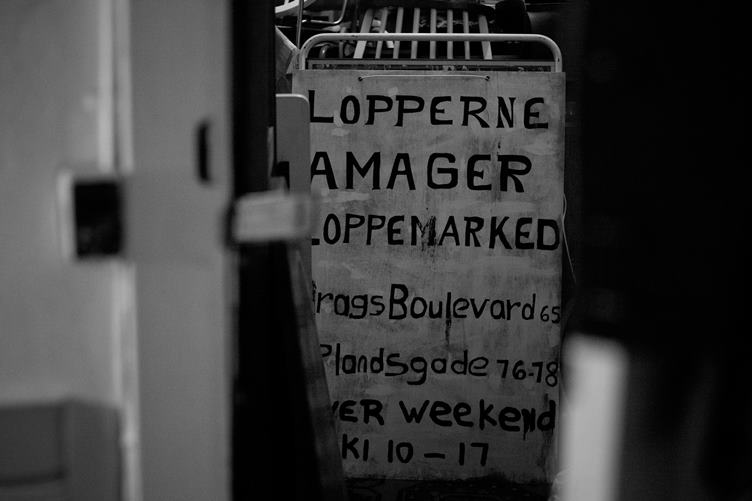 LOPPERNE
AMAGER
LOPPEMARKED
PragsBoulevard 65
Plandsgade 76-78
VER weekend
Kl 10 - 17